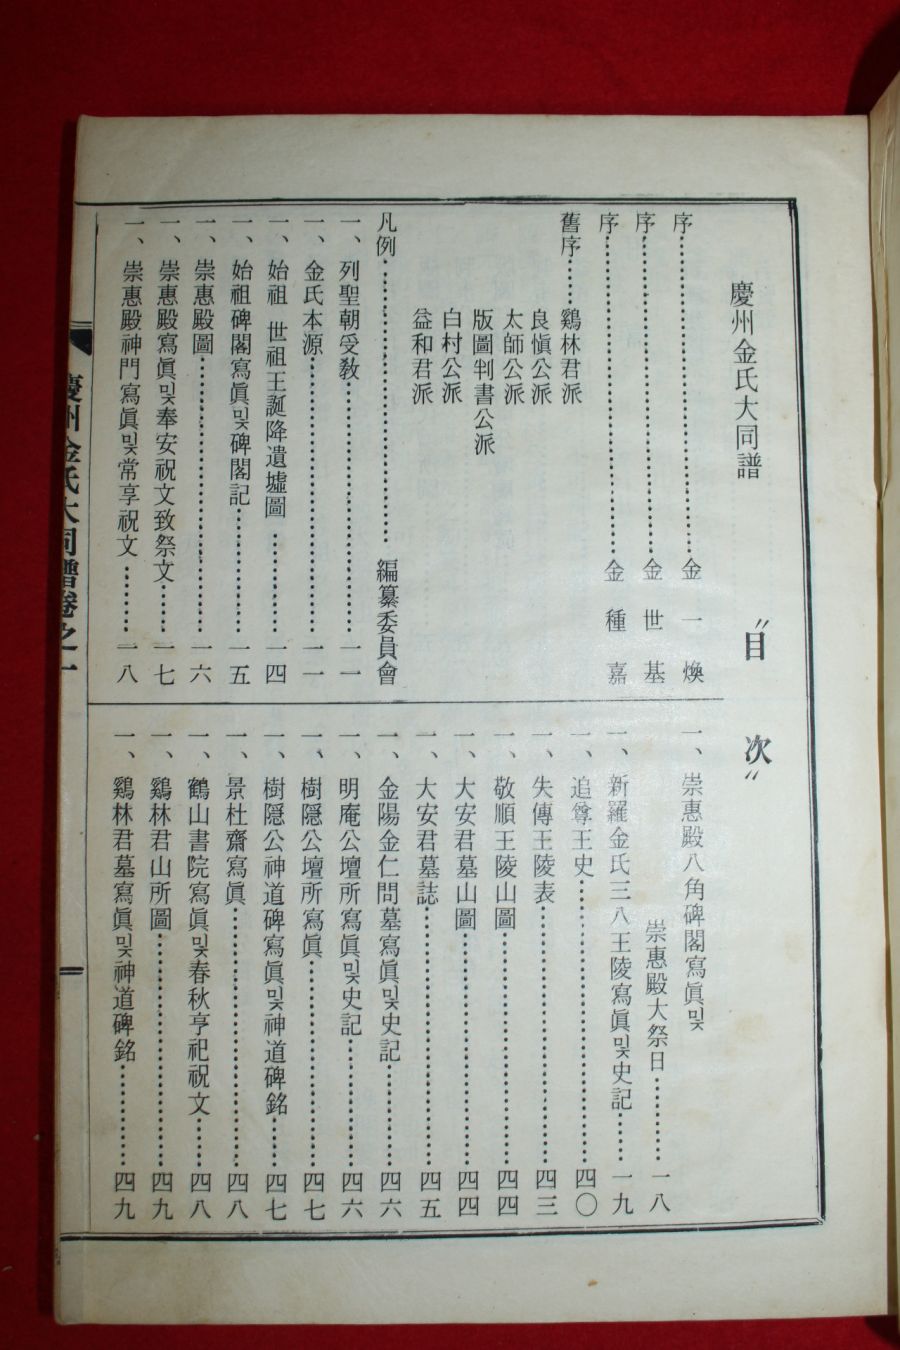 慶州金氏大同譜
〃目 次〃
序……………………………金 一 煥
序……………………………金 世 基
序……………………………金 種 嘉
舊序……鷄林君派
良愼公派
太師公派
版圖判書公派
白村公派
益和君派
凡例……………………………編纂委員會
一、列聖朝受敎……………………一一
一、金氏本源……………………一一
一、始祖 世祖王誕降遺墟圖…………一四
一、始祖碑閣寫眞및碑閣記…………一五
一、崇惠殿圖……………………一六
一、崇惠殿寫眞및奉安祝文致祭文……一七
一、崇惠殿神門寫眞및常享祝文………一八
一、崇惠殿八角碑閣寫眞및
崇惠殿大祭日………一八
一、新羅金氏三八王陵寫眞및史記……一九
一、追尊王史……………………四〇
一、失傳王陵表……………………四三
一、敬順王陵山圖……………………四四
一、大安君墓山圖……………………四四
一、大安君墓誌……………………四五
一、金陽金仁問墓寫眞및史記…………四六
一、明庵公壇所寫眞및史記…………四六
一、樹隱公壇所寫眞…………………四七
一、樹隱公神道碑寫眞및神道碑銘……四七
一、景杜齋寫眞……………………四八
一、鶴山書院寫眞및春秋亨祀祝文……四八
一、鷄林君山所圖……………………四九
一、鷄林君墓寫眞및神道碑銘…………四九
慶州金氏大同譜卷之一